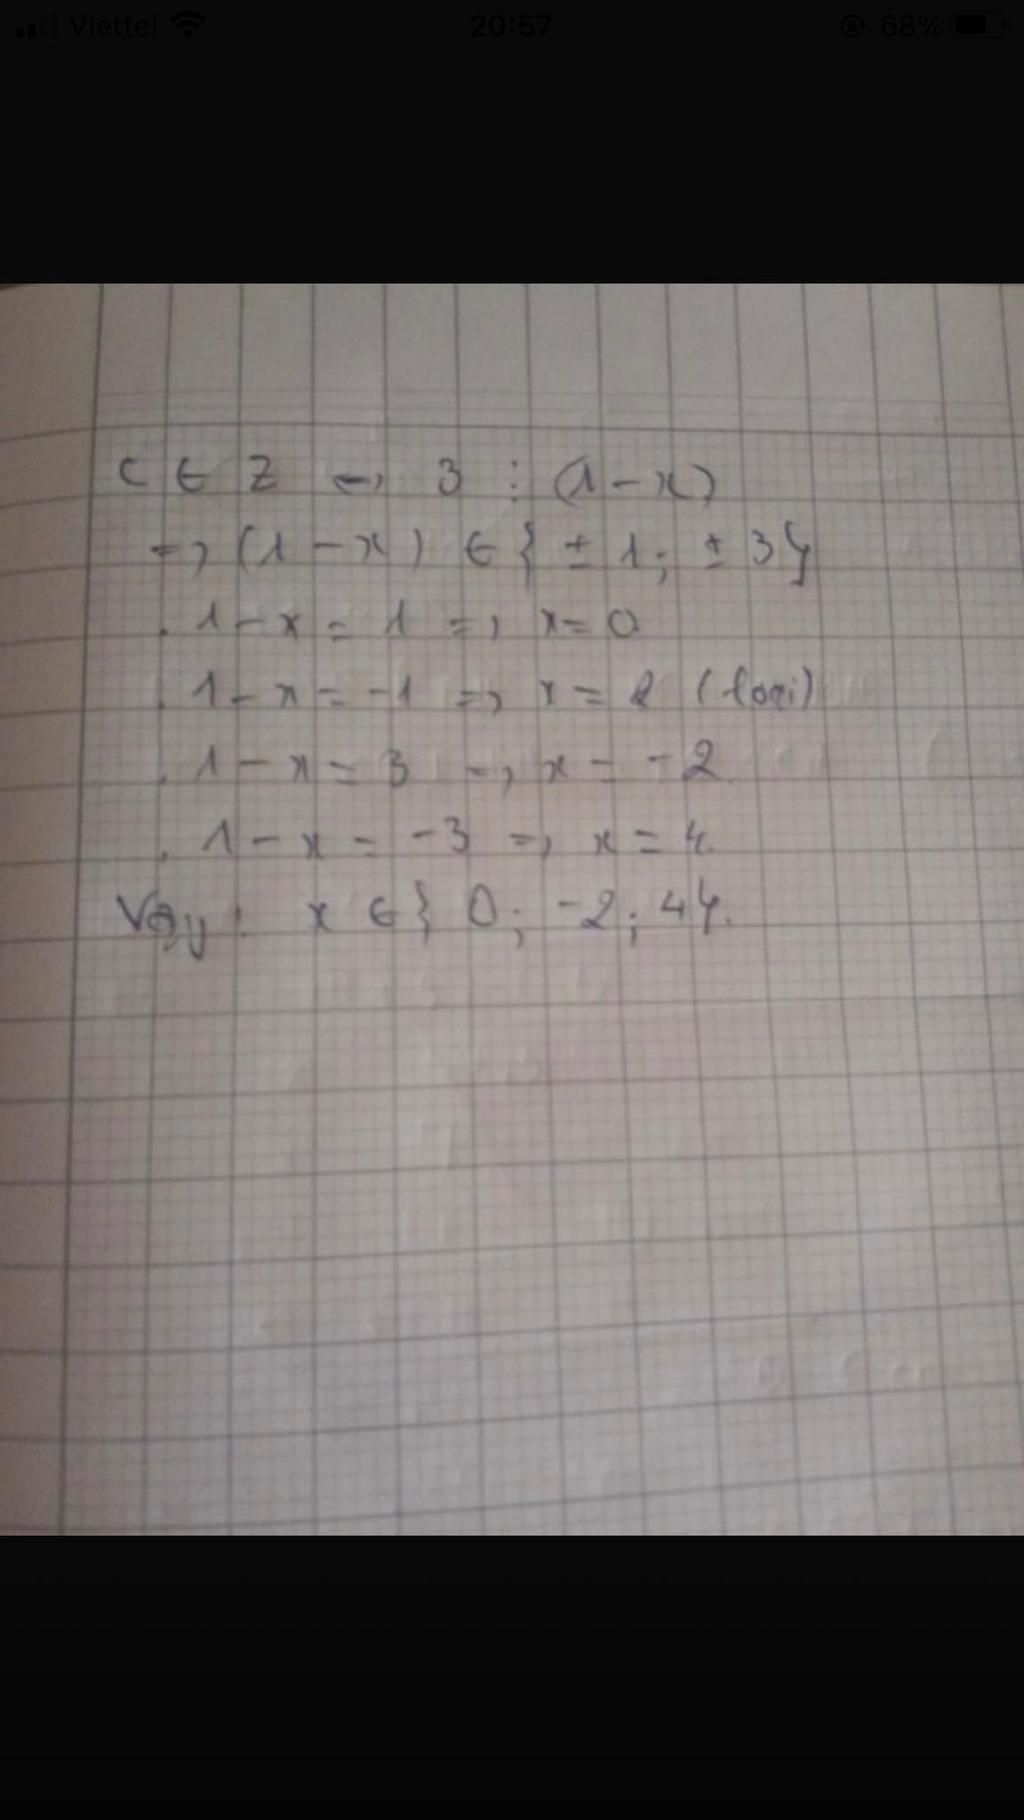 Viettel 20:57 68%
C ∈ Z => 3 ⋮ (1 - x)
=> (1 - x) ∈ { ± 1; ± 3}
. 1 - x = 1 => x = 0
. 1 - x = -1 => x = 2 (loại)
. 1 - x = 3 => x = -2
. 1 - x = -3 => x = 4.
Vậy : x ∈ { 0; -2; 4}.